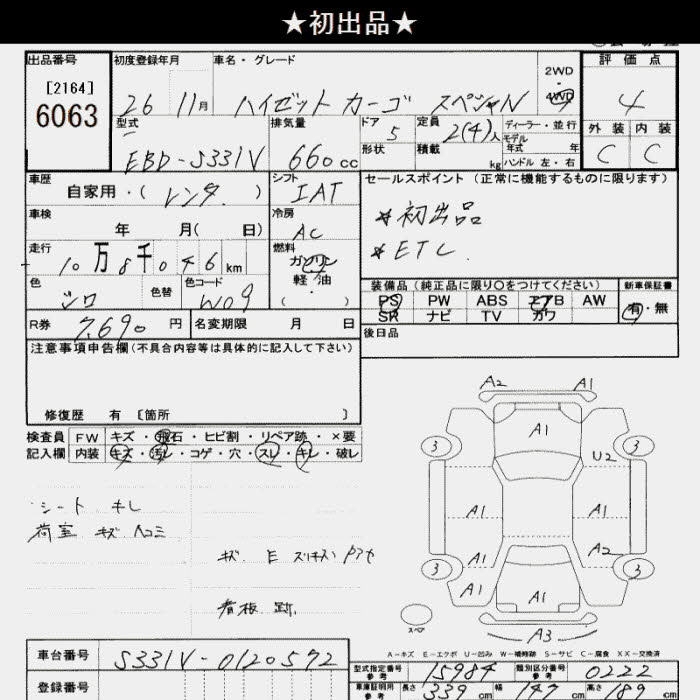 ★初出品★
出品番号 初度登録年月 車名・グレード 評価点
[2164]
6063
26 11月 ハイゼット カーゴ スペシャル
2WD・4WD
4
型式 排気量 ドア 定員 ディーラー・並行
外装 内装
EBD-S331V 660cc 5 2(4)人 モデル年式 年
形状 積載 kg ハンドル 左・右
C C
車歴 シフト セールスポイント (正常に機能するものに限ります)
自家用・( レンタ ) IAT
車検 冷房 *初出品
年 月( 日) AC
走行 燃料 *ETC
10万8千046km ガソリン
軽・油
( ・ )
色 色替 色コード 装備品 (純正品に限り〇をつけてください) 新車保証書
シロ W09
PS PW ABS エアB AW 有・無
SR ナビ TV カワ
R券 7,690円 名変期限 月 日 後日品
注意事項申告欄(不具合内容等は具体的に記入して下さい)
修復歴 有 [箇所 ]
検査員 FW キズ・飛石・ヒビ割・リペア跡・×要
記入欄 内装 キズ・汚レ・コゲ・穴・スレ・キレ・破レ
シート キレ
荷室 キズ ヘコミ
看板 跡
A2 A1
A1
3 3
U2
A1 A1
A1 A2
3 3
A1 A1
スペア
A3
A-キズ E-エクボ U-凹み W-補修跡 S-サビ C-腐食 XX-交換済
車台番号 S331V-0120572
型式指定番号 参考 15984 類別区分番号 参考 0222
登録番号
車庫証明用 参考 長さ 339cm 幅 147cm 高さ 189cm